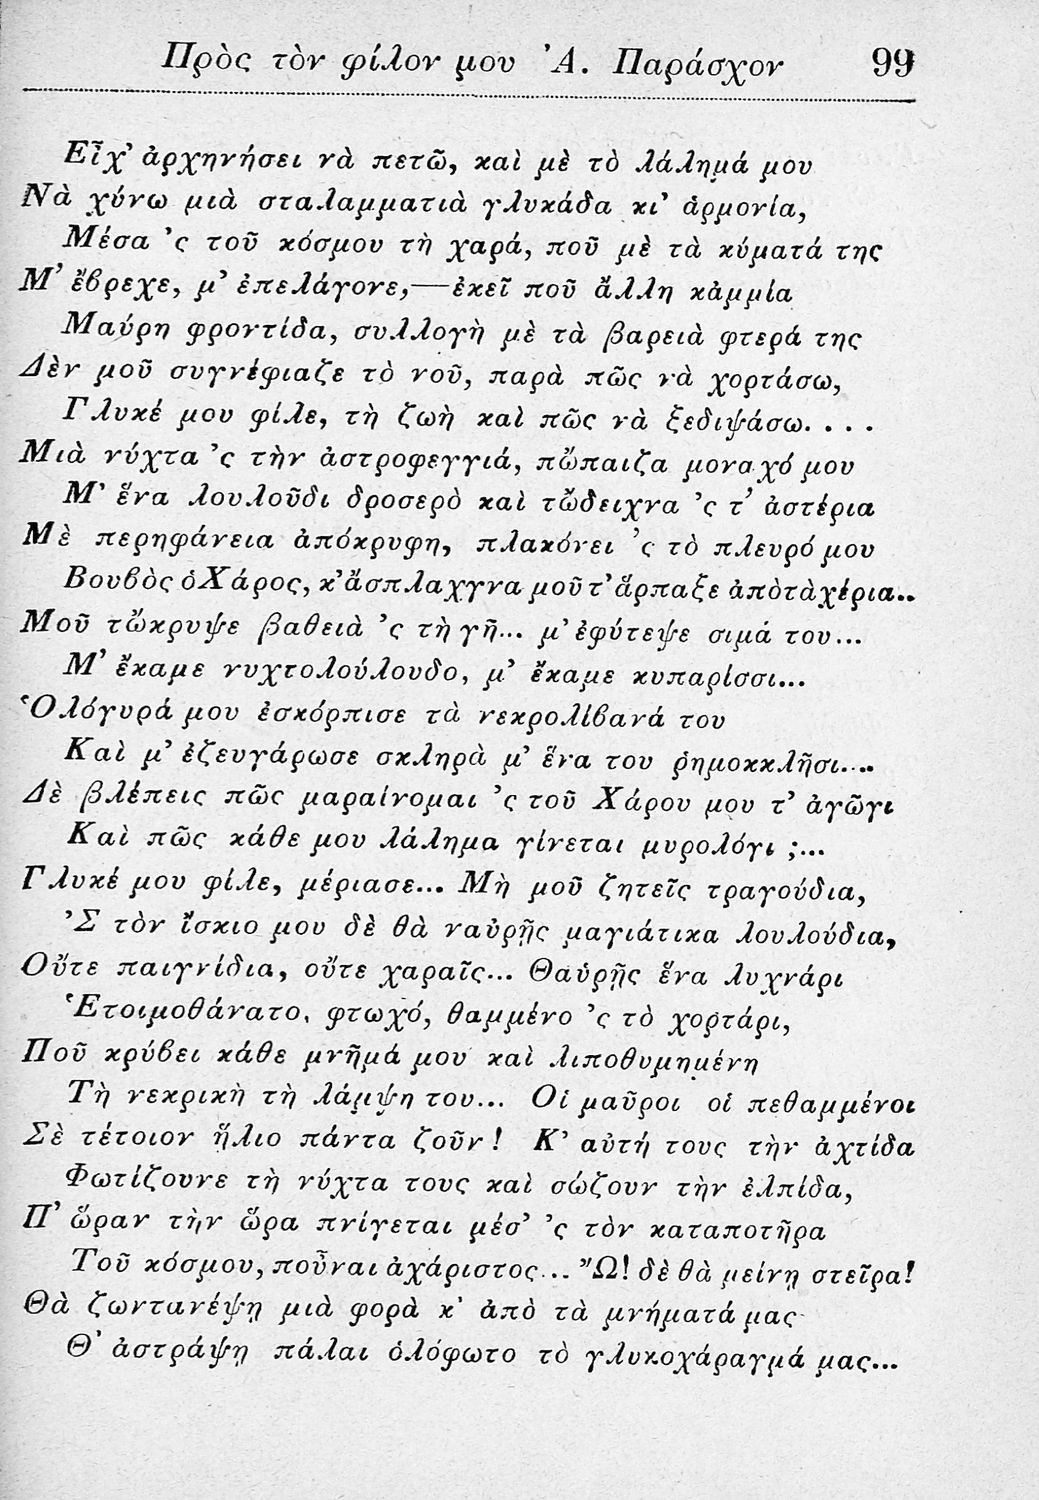 Πρὸς τὸν φίλον μου Ἀ. Παράσχον 99
Εἶχ’ ἀρχηνήσει νὰ πετῶ, καὶ μὲ τὸ λάλημά μου
Νὰ χύνω μιὰ σταλαμματιὰ γλυκάδα κι’ ἁρμονία,
Μέσα ’ς τοῦ κόσμου τὴ χαρά, ποῦ μὲ τὰ κύματά της
Μ’ ἔβρεχε, μ’ ἐπελάγονε,—ἐκεῖ ποῦ ἄλλη κἀμμία
Μαύρη φροντίδα, συλλογὴ μὲ τὰ βαρειὰ φτερά της
Δὲν μοῦ συγνέφιαζε τὸ νοῦ, παρὰ πῶς νὰ χορτάσω,
Γλυκέ μου φίλε, τὴ ζωὴ καὶ πῶς νὰ ξεδιψάσω....
Μιὰ νύχτα ’ς τὴν ἀστροφεγγιά, πὤπαιζα μοναχό μου
Μ’ ἕνα λουλοῦδι δροσερὸ καὶ τὤδειχνα ’ς τ’ ἀστέρια
Μὲ περηφάνεια ἀπόκρυφη, πλακόνει ’ς τὸ πλευρό μου
Βουβὸς ὁ Χάρος, κ’ ἄσπλαχγνα μοῦ τ’ ἅρπαξε ἀπὸ τὰ χέρια..
Μοῦ τὤκρυψε βαθειὰ ’ς τὴ γῆ... μ’ ἐφύτεψε σιμά του...
Μ’ ἔκαμε νυχτολούλουδο, μ’ ἔκαμε κυπαρίσσι...
Ὁλόγυρά μου ἐσκόρπισε τὰ νεκρολίβανά του
Καὶ μ’ ἐζευγάρωσε σκληρὰ μ’ ἕνα του ῥημοκκλῆσι....
Δὲ βλέπεις πῶς μαραίνομαι ’ς τοῦ Χάρου μου τ’ ἀγῶγι
Καὶ πῶς κάθε μου λάλημα γίνεται μυρολόγι ;...
Γλυκέ μου φίλε, μέριασε... Μὴ μοῦ ζητεῖς τραγούδια,
’Σ τὸν ἴσκιο μου δὲ θὰ ναὐρῇς μαγιάτικα λουλούδια,
Οὔτε παιγνίδια, οὔτε χαραῖς... Θαὑρῇς ἕνα λυχνάρι
Ἑτοιμοθάνατο, φτωχό, θαμμένο ’ς τὸ χορτάρι,
Ποῦ κρύβει κάθε μνῆμά μου καὶ λιποθυμημένη
Τὴ νεκρικὴ τὴ λάμψη του... Οἱ μαῦροι οἱ πεθαμμένοι
Σὲ τέτοιον ἥλιο πάντα ζοῦν! Κ’ αὐτή τους τὴν ἀχτίδα
Φωτίζουνε τὴ νύχτα τους καὶ σώζουν τὴν ἐλπίδα,
Π’ ὥραν τὴν ὥρα πνίγεται μέσ’ ’ς τὸν καταποτῆρα
Τοῦ κόσμου, ποὖναι ἀχάριστος... Ὢ! δὲ θὰ μείνῃ στεῖρα!
Θὰ ζωντανέψῃ μιὰ φορὰ κ’ ἀπὸ τὰ μνήματά μας
Θ’ ἀστράψῃ πάλαι ὁλόφωτο τὸ γλυκοχάραγμά μας...